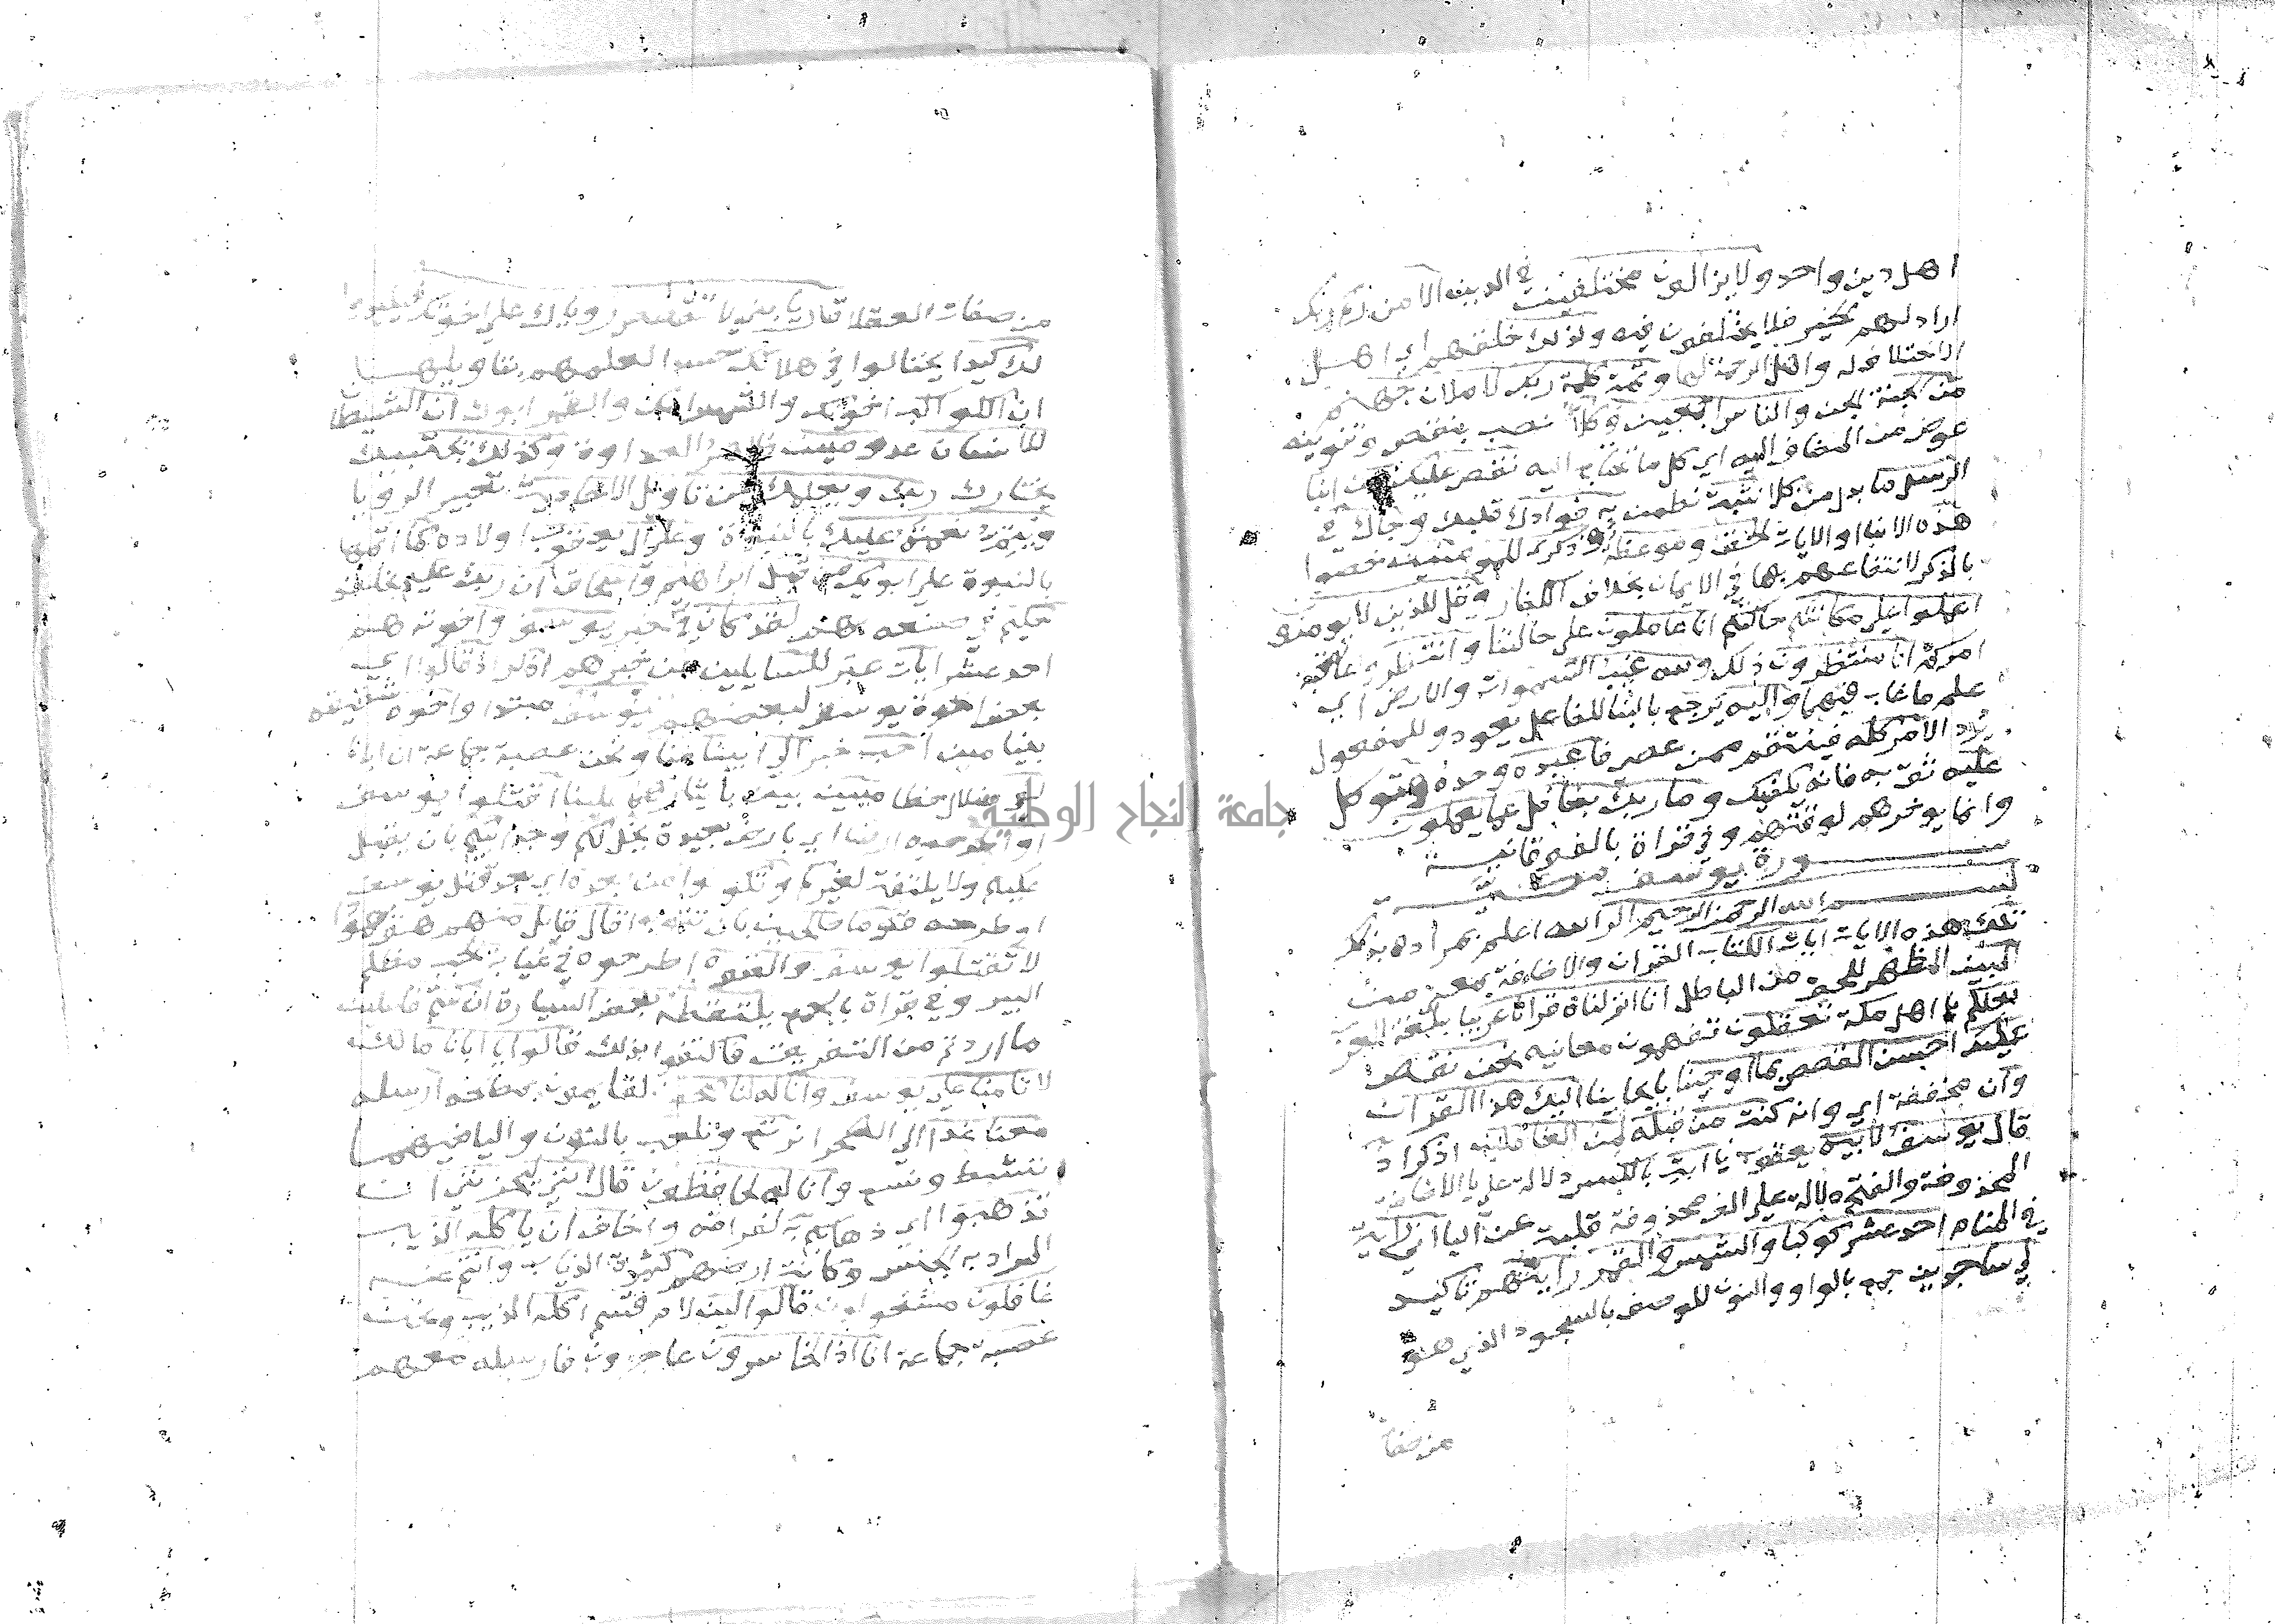 اهل دين واحد ولا يزالون مختلفين في الدين الا من رحم ربك
اراد لهم الخير فلا يختلفون فيه ولذلك خلقهم اي اهل
الاختلاف له واهل الرحمة لها وتمت كلمة ربك لاملان جهنم
من الجنة الجن والناس اجمعين وكلا نصب بنقص وتنوينه
عوض من المضاف اليه اي كل ما يحتاج اليه نقص عليك من انبا
الرسل ما بدل من كلا نثبت نطمن به فوادك قلبك وجاك في
هذه الانبا او الايات الحق وموعظة وذكرى للمومنين خصوا
بالذكر لانتفاعهم بها في الايمان بخلاف الكفار وقل للذين لا يومنون
اعملوا على مكانتكم حالتكم انا عاملون على حالتنا وانتظروا عاقبة
امركم انا منتظرون ذلك ولله غيب السموات والارض اي
علم ما غاب فيهما واليه يرجع بالبنا للفاعل يعود وللمفعول
يرد الامر كله فينتقم ممن عصى فاعبده وحده وتوكل
عليه ثق به فانه يكفيك وما ربك بغافل عما يعملون
وانما يوخرهم لوقتهم وفي قراة بالفوقانية
سورة يوسف مكية
بسم الله الرحمن الرحيم الر الله اعلم بمراده بذلك
تلك هذه الايات ايات الكتاب القران والاضافة بمعنى من
المبين المظهر للحق من الباطل انا انزلناه قرانا عربيا بلغة العرب
لعلكم يا اهل مكة تعقلون تفهمون معانيه نحن نقص
عليك احسن القصص بما اوحينا بايحاينا اليك هذا القران
وان مخففة اي وانه كنت من قبله لمن الغافلين اذكر اذ
قال يوسف لابيه يعقوب يا ابت بالكسر دلالة على يا الاضافة
المحذوفة والفتح دلالة على الف محذوفة قلبت عن اليا اني رايت
في المنام احد عشر كوكبا والشمس والقمر رايتهم تاكيد
لي ساجدين جمع بالواو والنون للوصف بالسجود الذي هو
من صفات
من صفات العقلا قال يا بني لا تقصص روياك على اخوتك فيكيدوا
لك كيدا يحتالوا في هلاكك حسدا لعلمهم بتاويلها
ان الكواكب اخوتك والشمس امك والقمر ابوك ان الشيطان
للانسان عدو مبين ظاهر العداوة وكذلك يجتبيك
يختارك ربك ويعلمك من تاويل الاحاديث تعبير الرويا
ويتم نعمته عليك بالنبوة وعلى ال يعقوب اولاده كما اتمها
بالنبوة على ابويك من قبل ابراهيم واسحاق ان ربك عليم بخلقه
حكيم في صنعه بهم لقد كان في خبر يوسف واخوته هم
احد عشر ايات عبر للسايلين عن خبرهم اذكر اذ قالوا اي
بعض اخوة يوسف لبعضهم ليوسف مبتدا واخوه شقيقه
بنيامين احب خبر الى ابينا منا ونحن عصبة جماعة ان ابانا
لفي ضلال خطا مبين بين بايثارهما علينا اقتلوا يوسف
او اطرحوه ارضا اي بارض بعيدة يخل لكم وجه ابيكم بان يقبل
عليكم ولا يلتفت لغيركم وتكونوا من بعده اي بعد قتل يوسف
او طرحه قوما صالحين بان تتوبوا قال قايل منهم هو يهوذا
لا تقتلوا يوسف والقوه اطرحوه في غيابة الجب مظلم
البير وفي قراة بالجمع يلتقطه بعض السيارة ان كنتم فاعلين
ما اردتم من التفريق فاكتفوا بذلك قالوا يا ابانا مالك
لا تامنا على يوسف وانا له لناصحون لقايمون بمصالحه ارسله
معنا غدا الى الصحرا نرتع ونلعب بالنون واليا فيهما
ننشط ونتسع وانا له لحافظون قال اني ليحزنني ان
تذهبوا اي ذهابكم به لفراقه واخاف ان ياكله الذيب
المراد به الجنس وكانت ارضهم كثيرة الذياب وانتم عنه
غافلون مشغولون قالوا لين لام قسم اكله الذيب ونحن
عصبة جماعة انا اذا لخاسرون عاجزون فارسله معهم
جامعة النجاح الوطنية